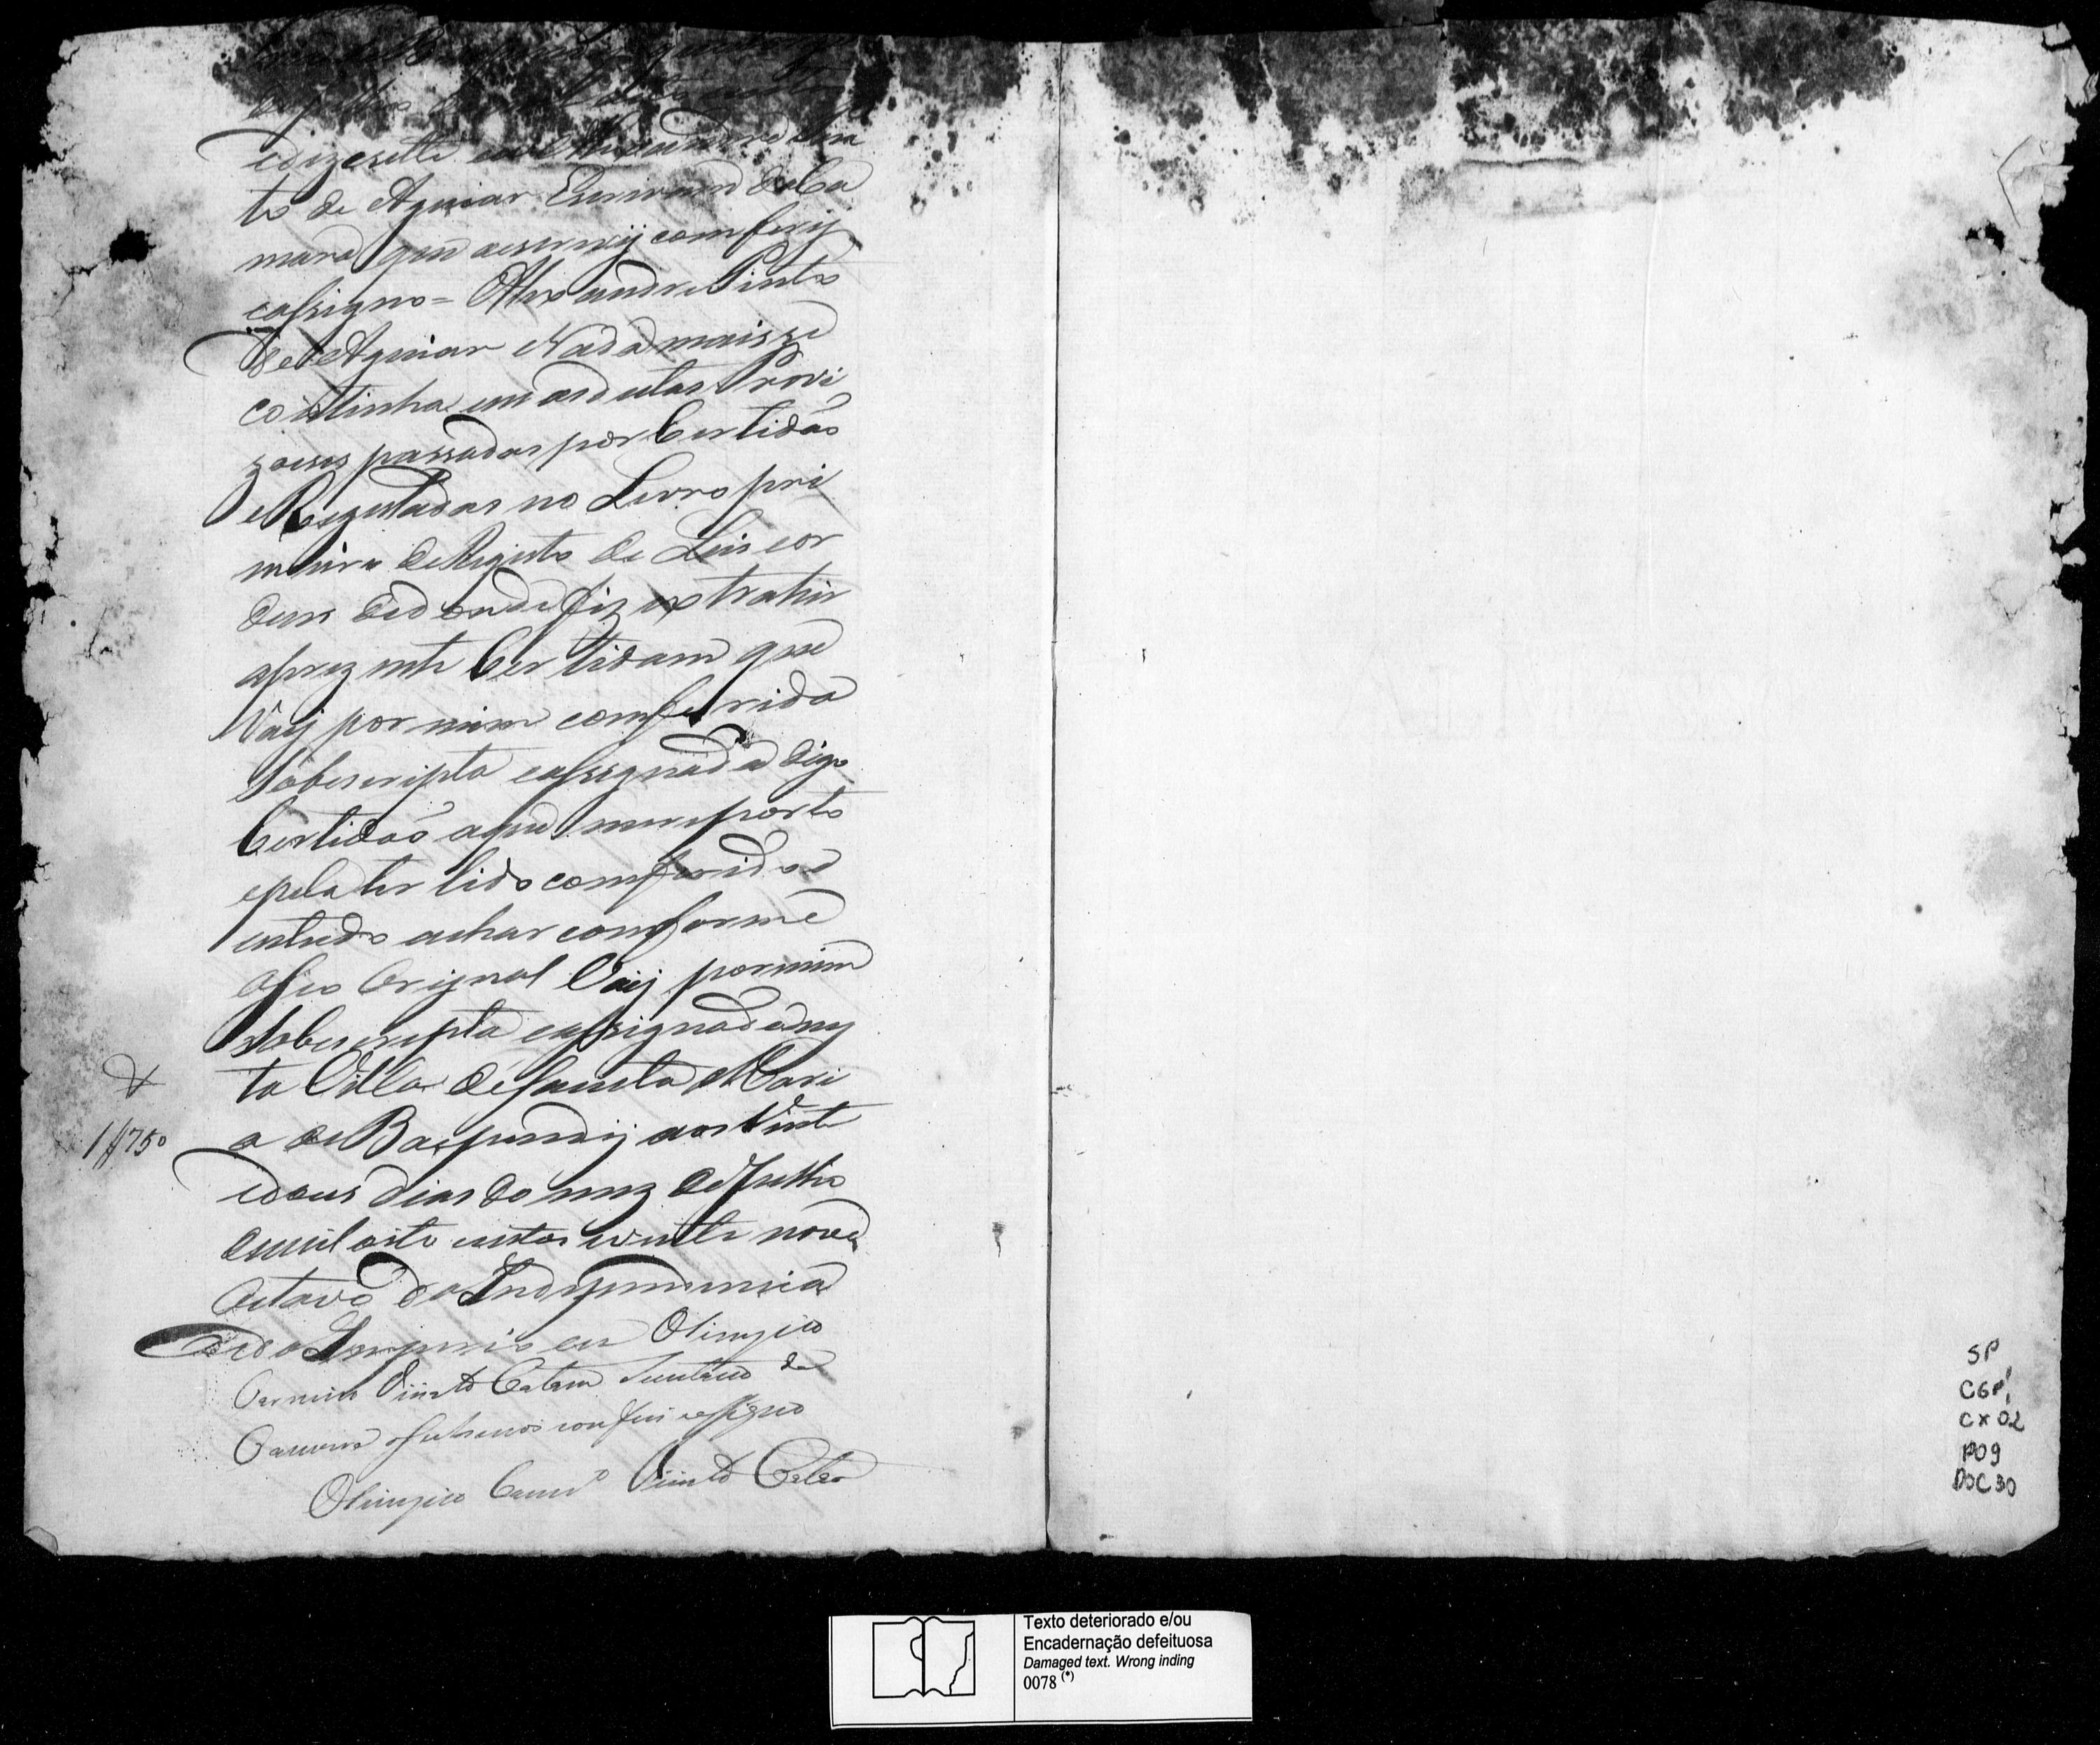 edizesette eu Alexandre Pin
to de Aguiar Escrivam da Ca
mara que aescrevij comferij
easigno = Alexandre Pinto
de Aguiar Nada mais se
comtinha em as ditas Provi
zoens passadas por Certidão
eRegistadas no Livro pri
meiro de Registo de Leis e or
dens dedonde fiz extrahir
aprezente Certidam que
Vaij por mim comferida
Sobescripta easignada digo
Certidão aque me reporto
epela ter lido comferido e
emtudo achar comforme
Orignal Vaij por mim
Sobescripta easignada nes
ta Villa de Santa Mari
a de Baependij aos Vinte
edous dias do mez de Julho
demil oito centos evinte nove
Oitavo da Independencia
edo Imperio eu Olimpico
Carneiro Viriato Catam Secretario da
Camara que sobescrevi conferi easigno
Olimpico Carnr.o Viriato Catão
1$750
SP
CGP1
CX02
P09
DOC30
Texto deteriorado e/ou
Encadernação defeituosa
Damaged text. Wrong inding
0078 (*)